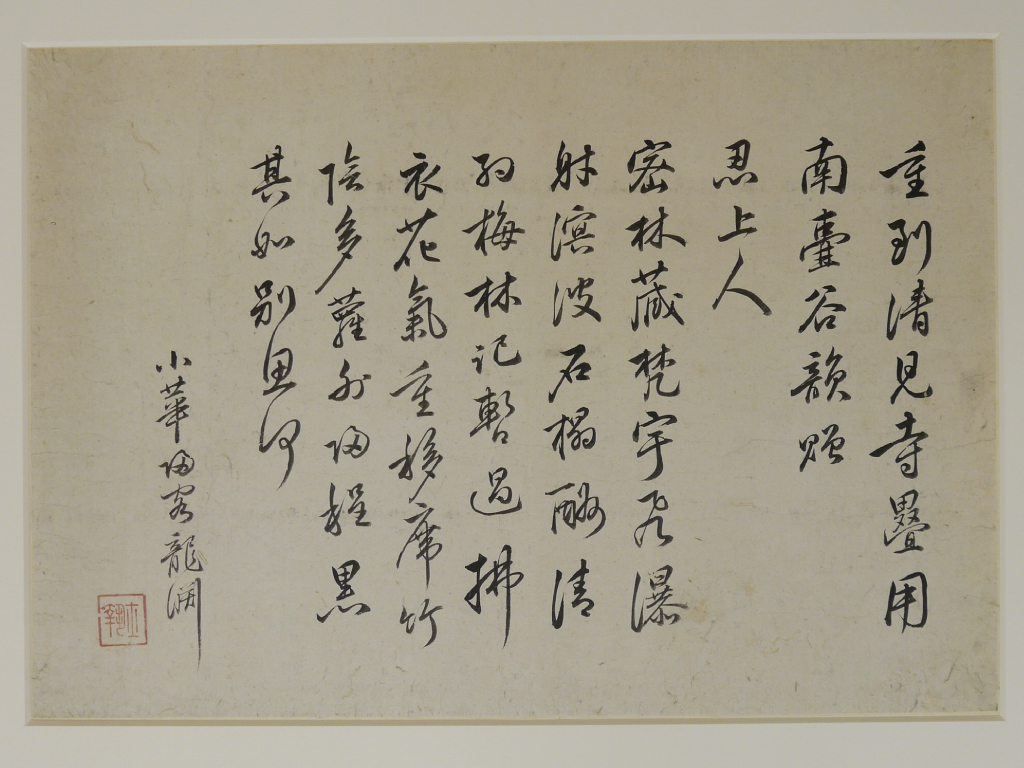 重到清見寺疊用
南壺谷韻贈
忍上人
密林藏梵宇飛瀑
射溟波石榻酬清
約梅林記暫過拂
衣花氣重移席竹
陰多蘿外歸程黑
其如別思何
小華歸客龍淵
士執